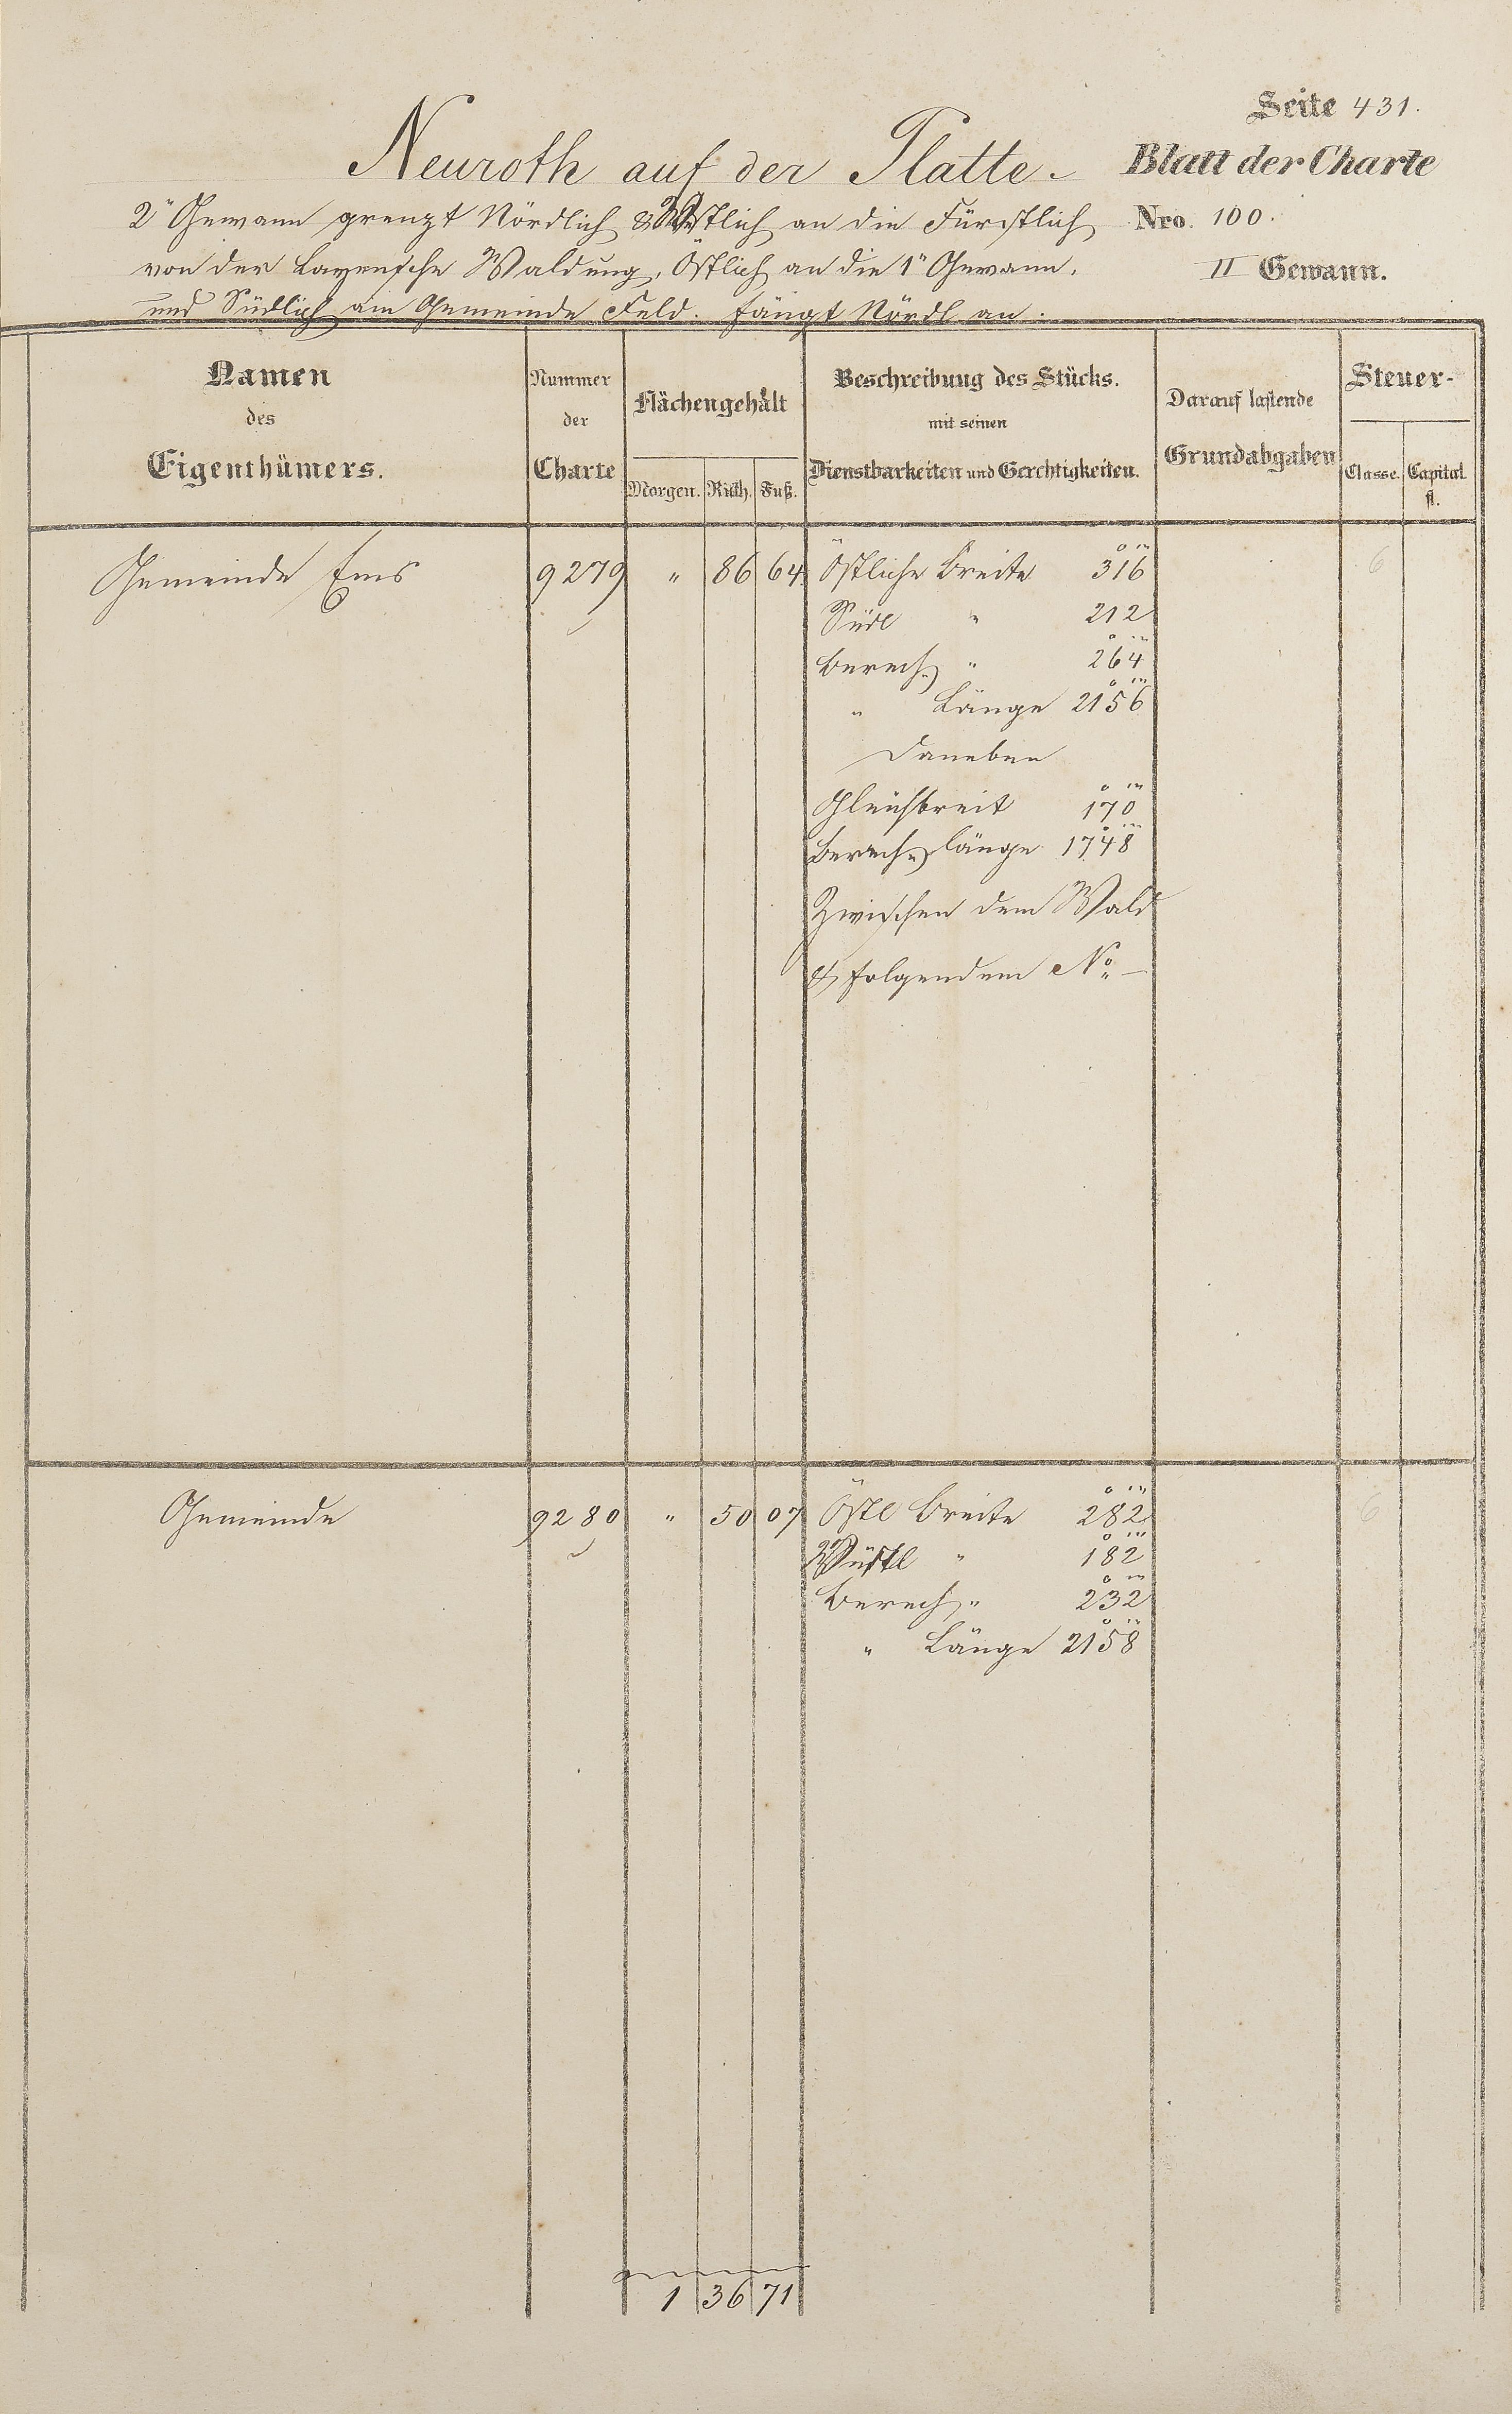 Seite 431.
Neuroth auf der Platte.
Blatt der Charte
Nro. 100.
II Gewann.
2" Gewann grenzt Nördlich & Westlich an die Fürstlich
von der Layensche Waldung, Östlich an die 1" Gewann,
und Südlich am Gemeinde Feld. fängt Nördl an.
Namen des Eigenthümers.
Nummer der Charte
Flächengehalt
Morgen. Ruth. Fuß.
Beschreibung des Stücks.
mit seinen
Dienstbarkeiten und Gerechtigkeiten.
Darauf lastende
Grundabgaben
Steuer-
Classe. Capital
fl.
Gemeinde Ems 9279 " 86 64 Östliche Breite 316 6
Südl " 212
Berech " 264
" Länge 2156
Daneben
Gleichbreit 170
Berech länge 1748
Zwischen dem Wald
& folgendem No –
Gemeinde 9280 " 50 07 Östl Breite 282 6
Westl " 182
Berech " 232
" Länge 2158
1 36 71